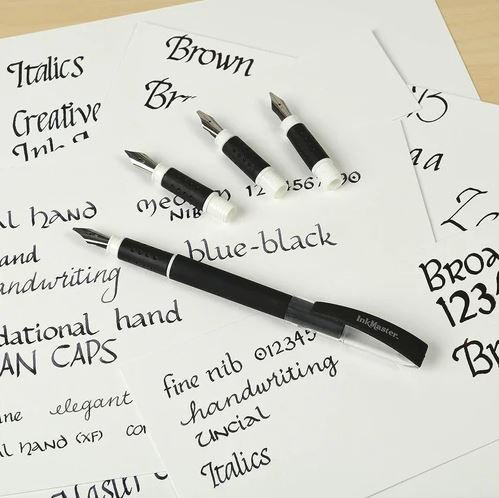 Italics
Creative
Ink
Brown
Br
aa
medium 1234567890
NIB
al hand
and
handwriting
dational hand
AN CAPS
ne elegant
al hand (XF) con
blue-black
InkMaster
fine nib 012345
handwriting
uncial
Italics
Broa
1234
Br
Master